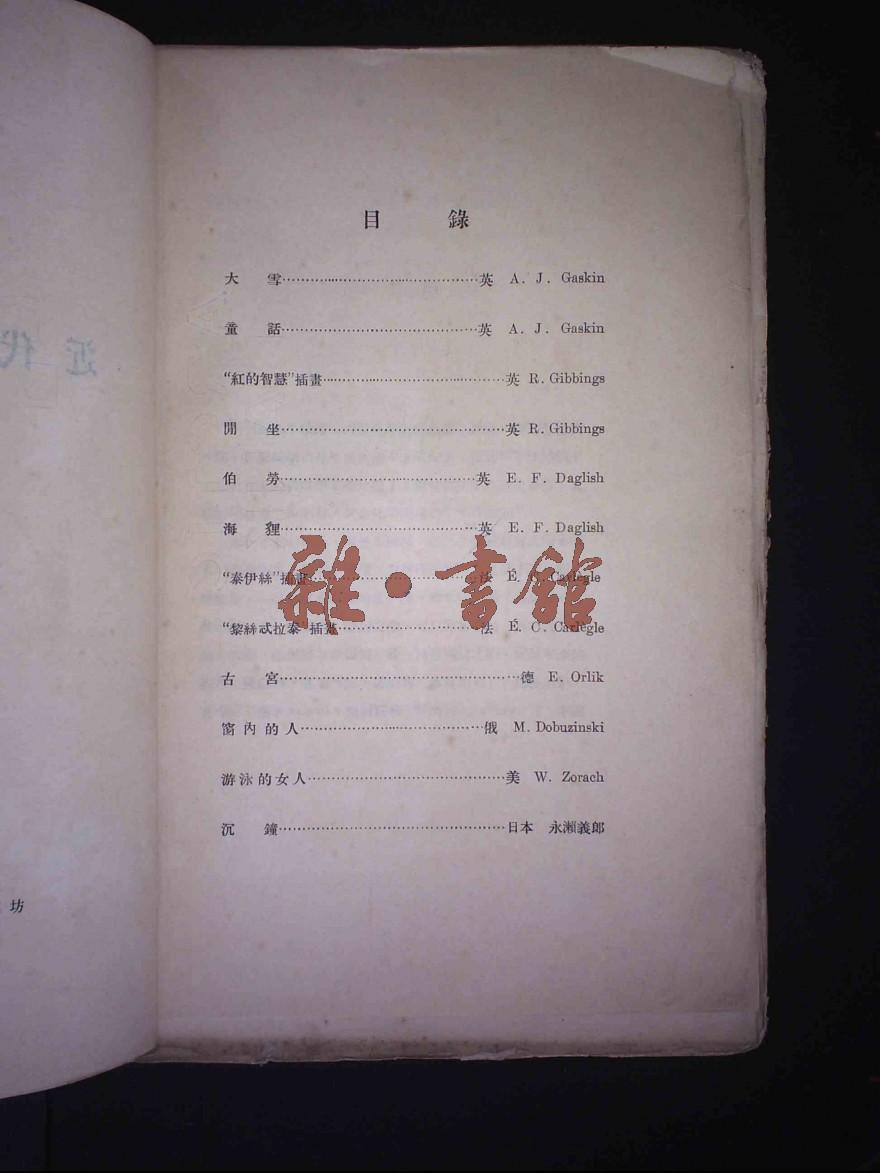 目 錄
大 雪………………………………英 A. J. Gaskin
童 話………………………………英 A. J. Gaskin
“紅的智慧”插畫………………………………英 R. Gibbings
閒 坐………………………………英 R. Gibbings
伯 勞………………………………英 E. F. Daglish
海 狸………………………………英 E. F. Daglish
“泰伊絲”插畫………………………………法 É. C. Carlègle
“黎絲忒拉泰”插畫………………………………法 É. C. Carlègle
古 宮………………………………德 E. Orlik
窗內的人………………………………俄 M. Dobuzinski
游泳的女人………………………………美 W. Zorach
沉 鐘………………………………日本 永瀨義郎
雜·書館
近代
坊